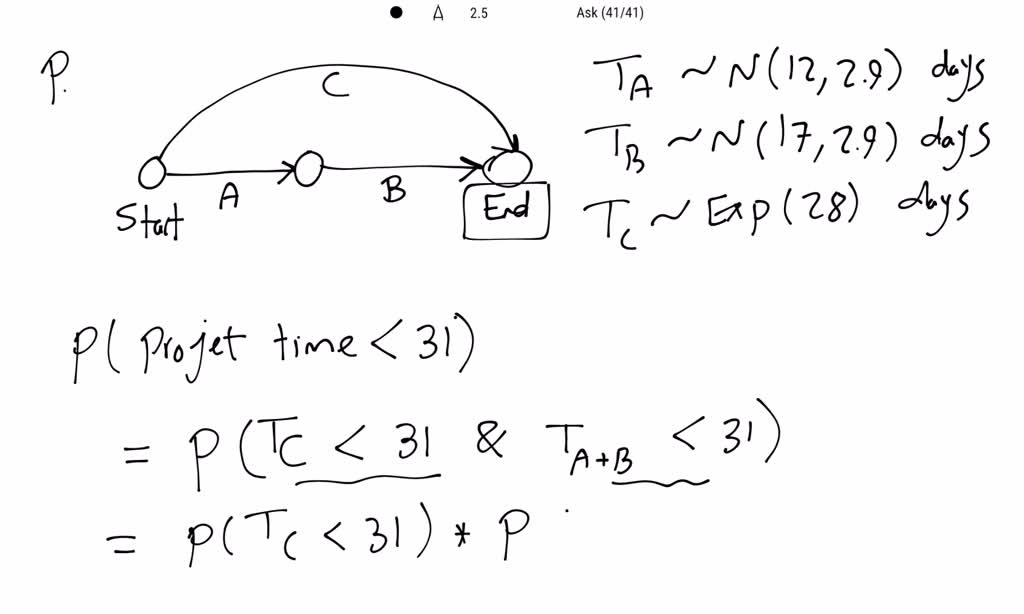 A 2.5 Ask (41/41)
P.
C
T_A ~ N(12, 2.9) days
T_B ~ N(17, 2.9) days
A B
Start End
T_C ~ Exp(28) days
P( Projet time < 31)
= P(T_C < 31 & T_A+B < 31)
= P(T_C < 31) * P